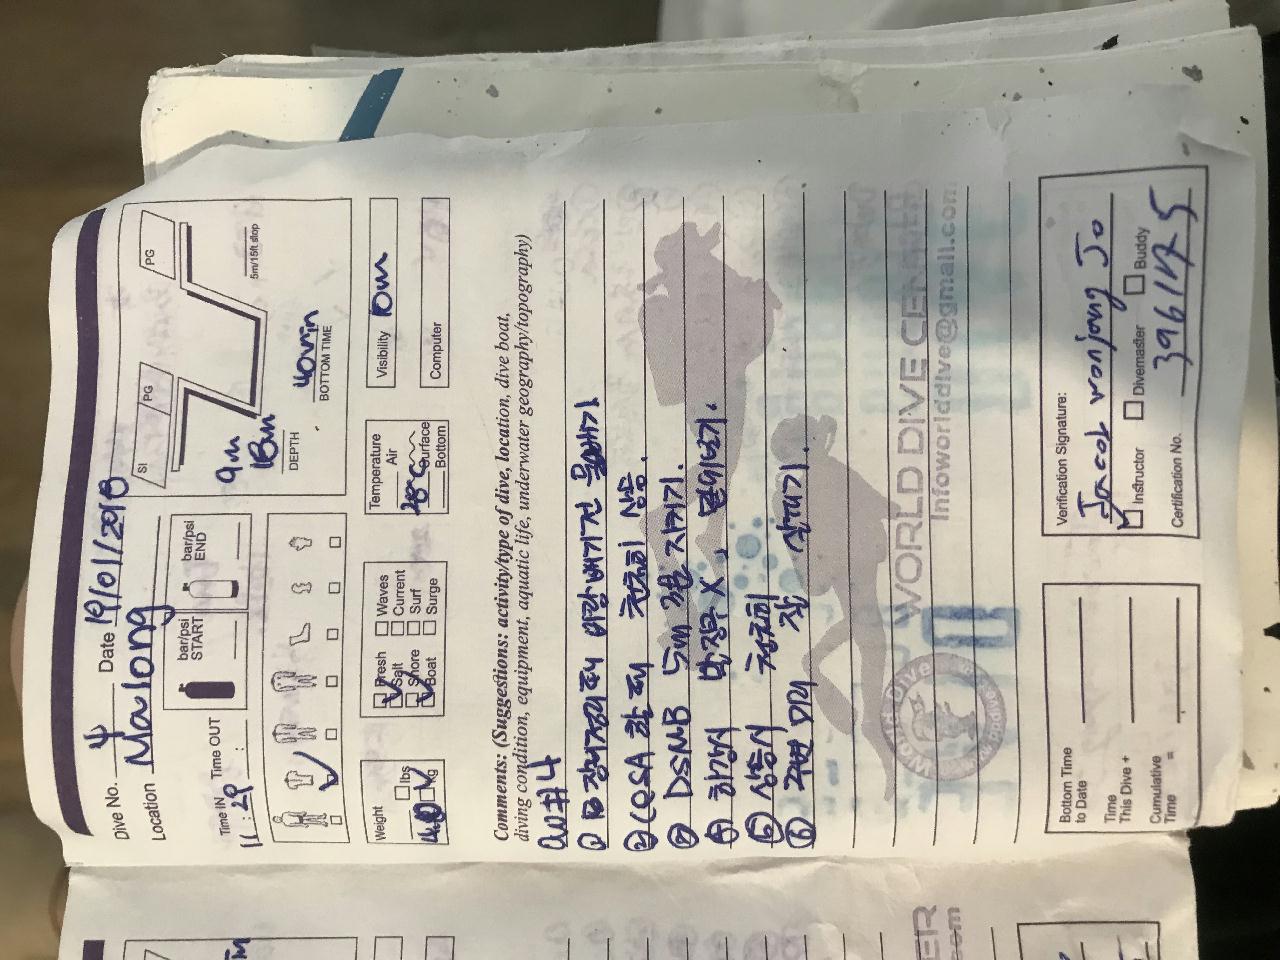 Dive No. 4 Date 19/01/2018
Location Marlong
SI
PG
PG
Time IN
11:29
Time OUT
:
bar/psi
START
bar/psi
END
9m
18m
DEPTH
40min
BOTTOM TIME
5m/15ft stop
Weight
lbs
kg
Fresh
Salt
Shore
Boat
Waves
Current
Surf
Surge
Temperature
Air
28°C Surface
Bottom
Visibility 10m
Computer
Comments: (Suggestions: activity/type of dive, location, dive boat,
diving condition, equipment, aquatic life, underwater geography/topography)
OW#4
① 장비정리때 바람빼기전 물빼기
② CESA 할 때 천천히 상승.
③ DSMB 두께 자기.
④ 하강시 X, 벌리기.
⑤ 상승시 천천히
⑥ 미리 잘 살피기.
WORLD DIVE CENTER
Infoworlddive@gmail.com
Bottom Time
to Date
Time
This Dive +
Cumulative
Time =
Verification Signature:
Jacob wonjong Jo
Instructor
Divemaster
Buddy
Certification No. 396117 5